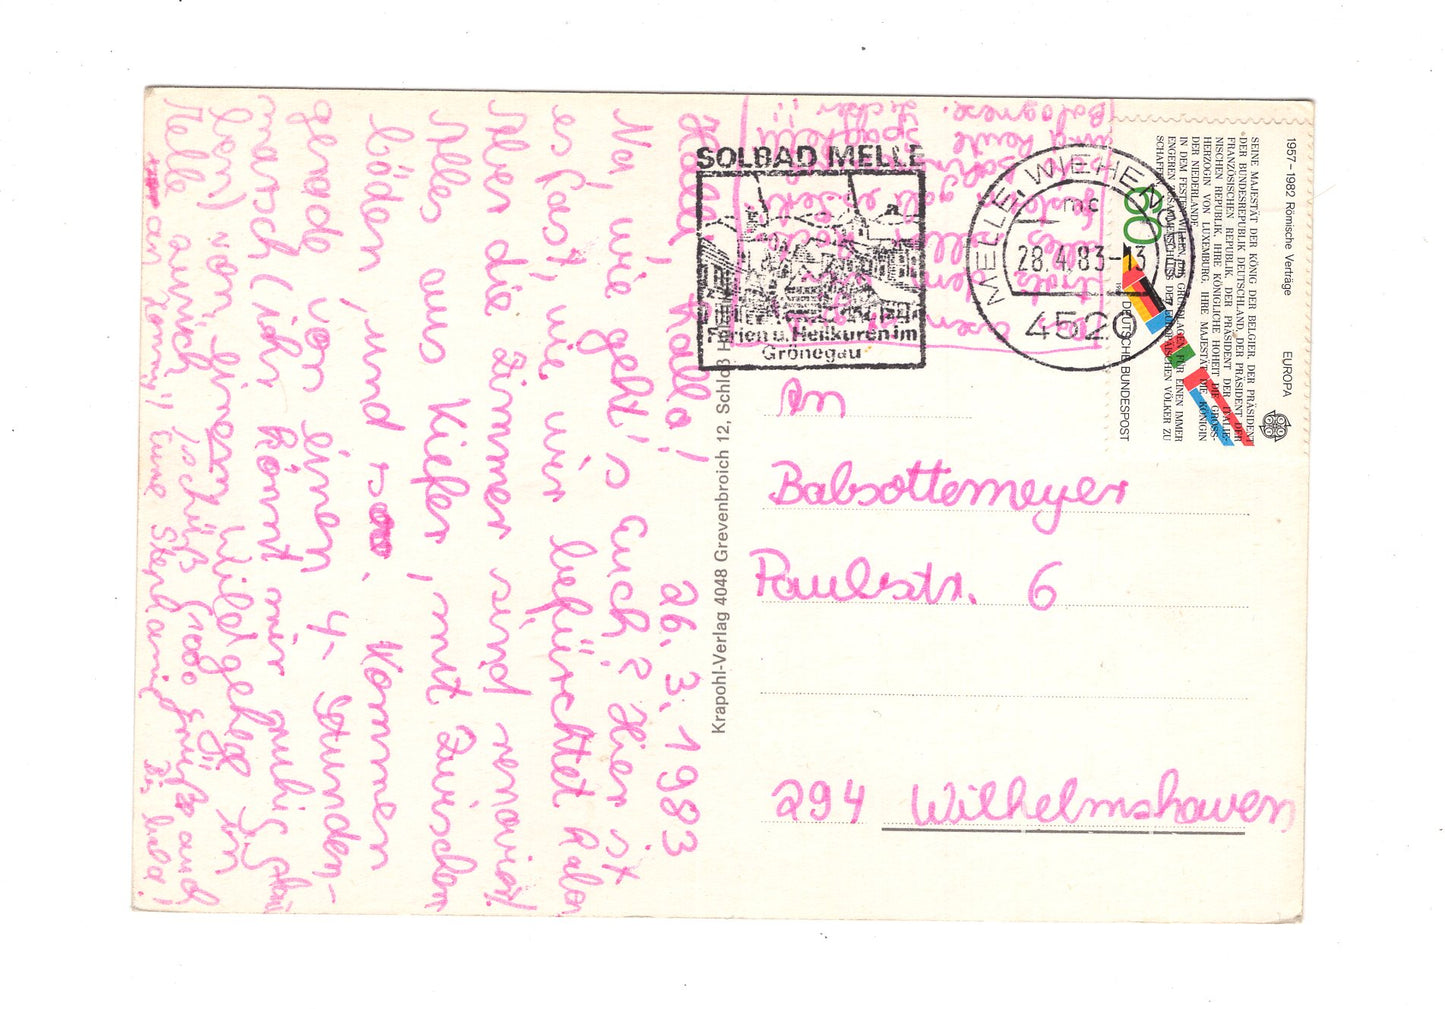 26.3.1983
Hallo, Hallo!
Na, wie geht's Euch? Hier ist
es fast, wie wir befürchtet haben
Aber die Zimmer sind renoviert.
Alles aus Kiefer, mit Zwischen
böden, und so. Kommen
gerade von einen 4-stunden-
marsch (ihr könnt mir ruhig
von einem Wildgeheg in
Melle zurück, schüß 1000 Grüße auch
an Rommy! Eure Stephanie Bis bald!
alles
trotz
und heute
Spaghetti
Bolognese.
Lecker!!
SOLBAD MELLE
Ferien u. Heilkuren im
Grönegau
MELLE, WIEHEN
mc
28.4.83-13
4520
1957–1982 Römische Verträge EUROPA
SEINE MAJESTÄT DER KÖNIG DER BELGIER, DER PRÄSIDENT
DER BUNDESREPUBLIK DEUTSCHLAND, DER PRÄSIDENT DER
FRANZÖSISCHEN REPUBLIK, DER PRÄSIDENT DER ITALIE-
NISCHEN REPUBLIK, IHRE KÖNIGLICHE HOHEIT DIE GROSS-
HERZOGIN VON LUXEMBURG, IHRE MAJESTÄT DIE KÖNIGIN
DER NIEDERLANDE,
IN DEM FESTEN WILLEN, DIE GRUNDLAGEN FÜR EINEN IMMER
ENGEREN ZUSAMMENSCHLUSS DER EUROPÄISCHEN VÖLKER ZU
SCHAFFEN
60
DEUTSCHE BUNDESPOST
Krapohl-Verlag 4048 Grevenbroich 12, Schloß
An
Babsottemeyer
Paulstr. 6
294 Wilhelmshaven